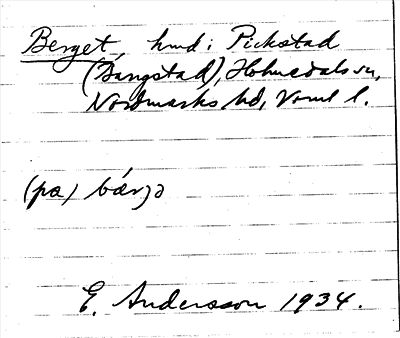 Berget, hmd i Pickstad
(Bangstad), Holmedals sn,
Nordmarks hd, Vrml l.
(pa) bärjə
E. Andersson 1934.